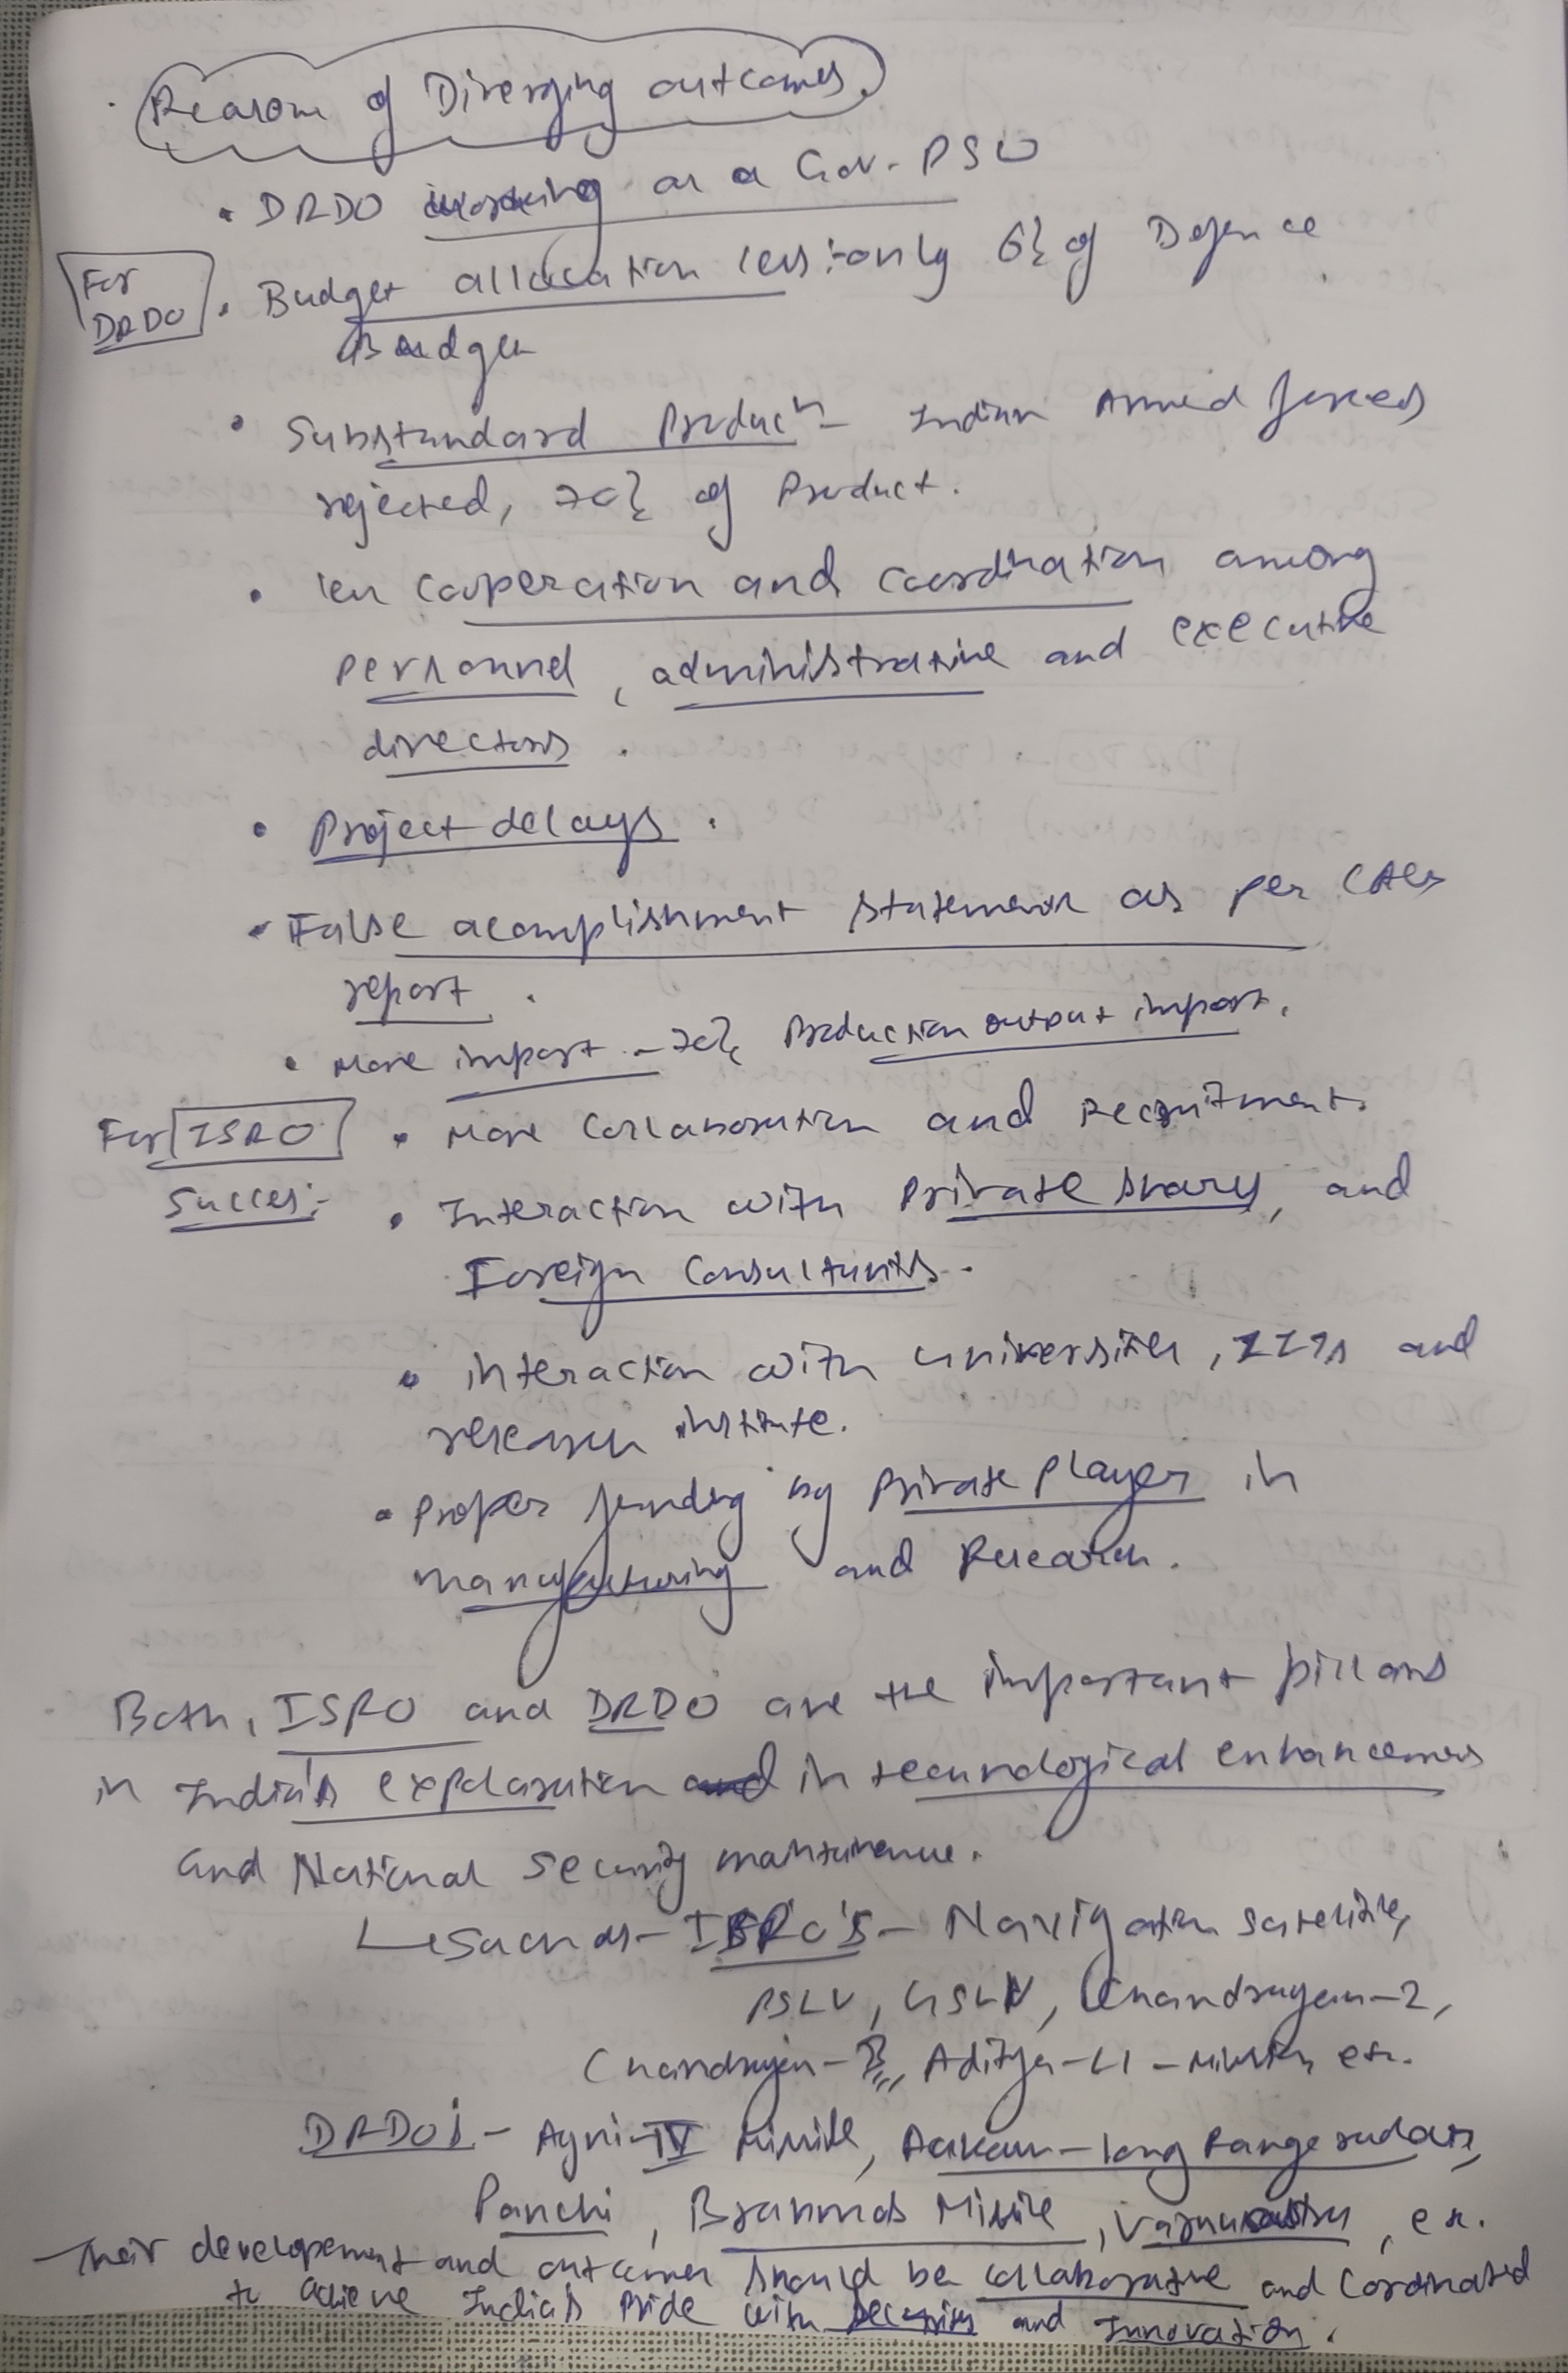 Reasons of Diverging outcomes.
• DRDO working as a Gov. PSU
For
DRDO
• Budget allocation less :- only 6% of Defence
Budget
• Substandard Product - Indian Armed forces
rejected, 70% of Product.
• less cooperation and coordination among
personnel, administrative and executive
directors.
• Project delays.
• False acomplishment statement as per CAG's
report.
• More import - 70% Production output import.
For ISRO
Succes:-
• More Collaboration and Recruitment.
• Interaction with Private and
Foreign
• interaction with universities, IITs and
research institute.
• Proper funding by Private Player in
manufacturing and Research.
Both, ISRO and DRDO are the important pillars
in India's explaration in technological enhancemens
and National Security
Such as - ISRO'S - Navigation satellite,
PSLV, GSLV, Chandrayan-2,
Chandrayan-3, Aditya-L1 - Mission etc.
DRDO's - Agni-IV Missile, Aakash - long Range radars,
Panchi, Brahmos Missile, etc.
Their developement and outcomes should be collaborative and Cordinated
to achieve India's Pride with security and Innovation.